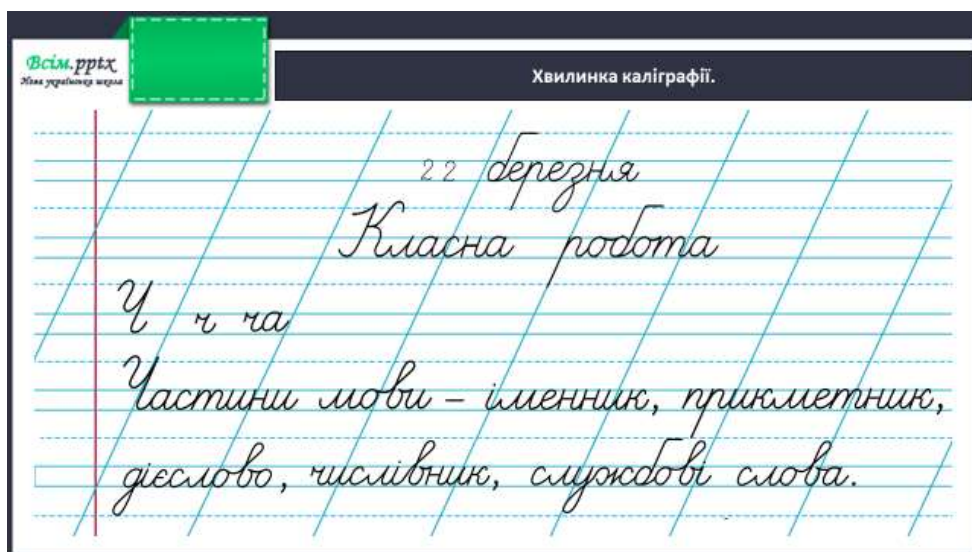 Всім.pptx
Нова українська школа
Хвилинка каліграфії.
22 березня
Класна робота
Ч ч ча
Частини мови – іменник, прикметник,
дієслово, числівник, службові слова.